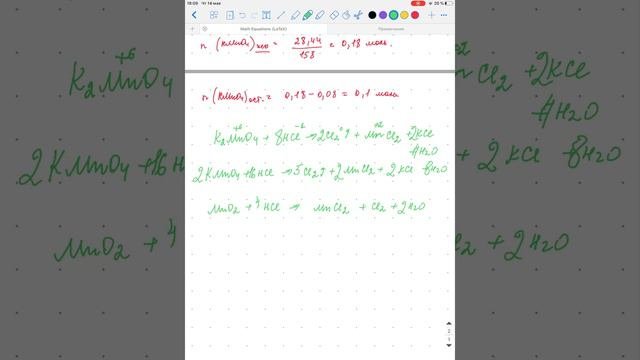 18:09 Чт 14 мая
20 %
Math Equations (LaTeX)
Примечание
n (KMnO4) исх = 28,44 / 158 = 0,18 моль.
n (KMnO4) ост. = 0,18 - 0,08 = 0,1 моль
K2MnO4 + 8HCl → 2Cl2 + MnCl2 + 2KCl
+6 -1 0 +2
4H2O
2KMnO4 + 16HCl → 5Cl2 + 2MnCl2 + 2KCl 8H2O
MnO2 + 4HCl → MnCl2 + Cl2 + 2H2O